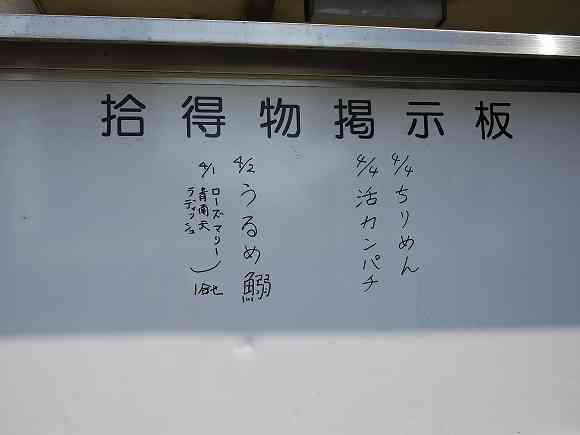 拾得物掲示板
4/4 ちりめん
4/4 活カンパチ
4/2 うるめ鰯
4/1 ローズマリー
青南天
ラディッシュ
1台